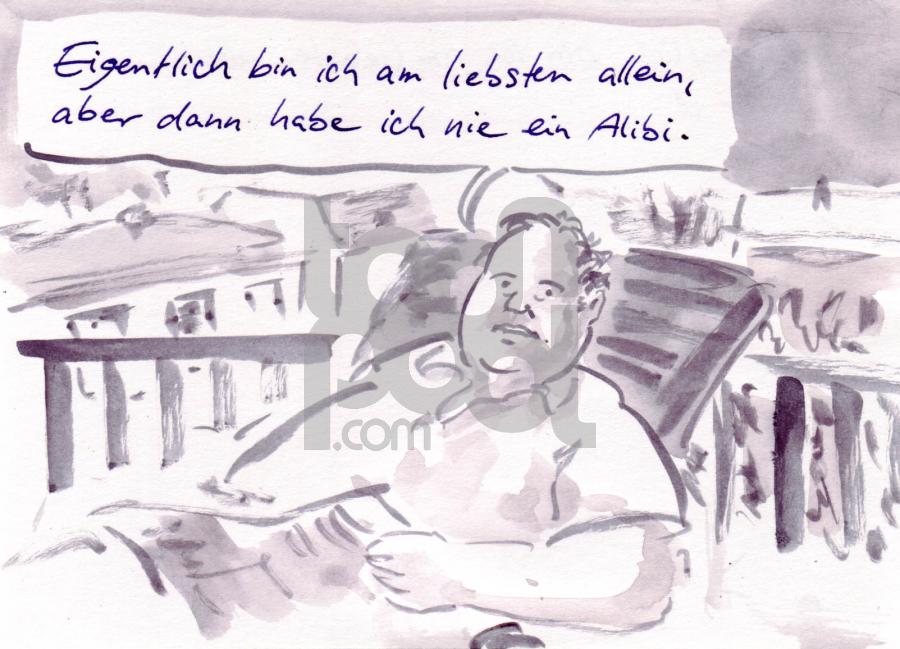 Eigentlich bin ich am liebsten allein,
aber dann habe ich nie ein Alibi.
toonpool
.com